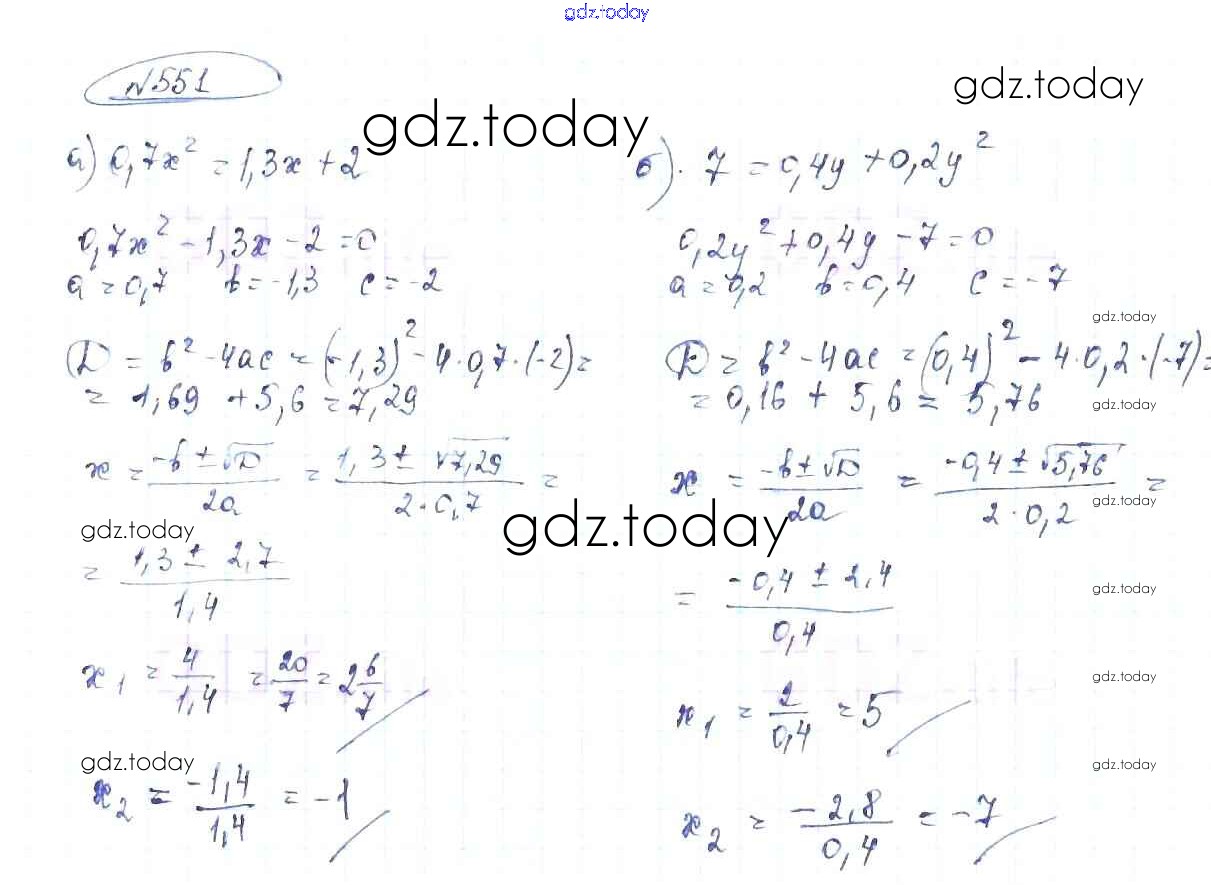 gdz.today
№551
gdz.today
gdz.today
а) 0,7x² = 1,3x + 2
0,7x² - 1,3x - 2 = 0
a = 0,7 b = -1,3 c = -2
D = b² - 4ac = (-1,3)² - 4·0,7·(-2) =
= 1,69 + 5,6 = 7,29
x = (-b ± √D)/2a = (1,3 ± √7,29)/(2·0,7) =
gdz.today
gdz.today
= (1,3 ± 2,7)/1,4
x₁ = 4/1,4 = 20/7 = 2 6/7
gdz.today
x₂ = -1,4/1,4 = -1
б). 7 = 0,4y + 0,2y²
0,2y² + 0,4y - 7 = 0
a = 0,2 b = 0,4 c = -7
gdz.today
D = b² - 4ac = (0,4)² - 4·0,2·(-7) =
= 0,16 + 5,6 = 5,76
gdz.today
x = (-b ± √D)/2a = (-0,4 ± √5,76)/(2·0,2) =
gdz.today
= (-0,4 ± 2,4)/0,4
gdz.today
gdz.today
x₁ = 2/0,4 = 5
gdz.today
x₂ = -2,8/0,4 = -7